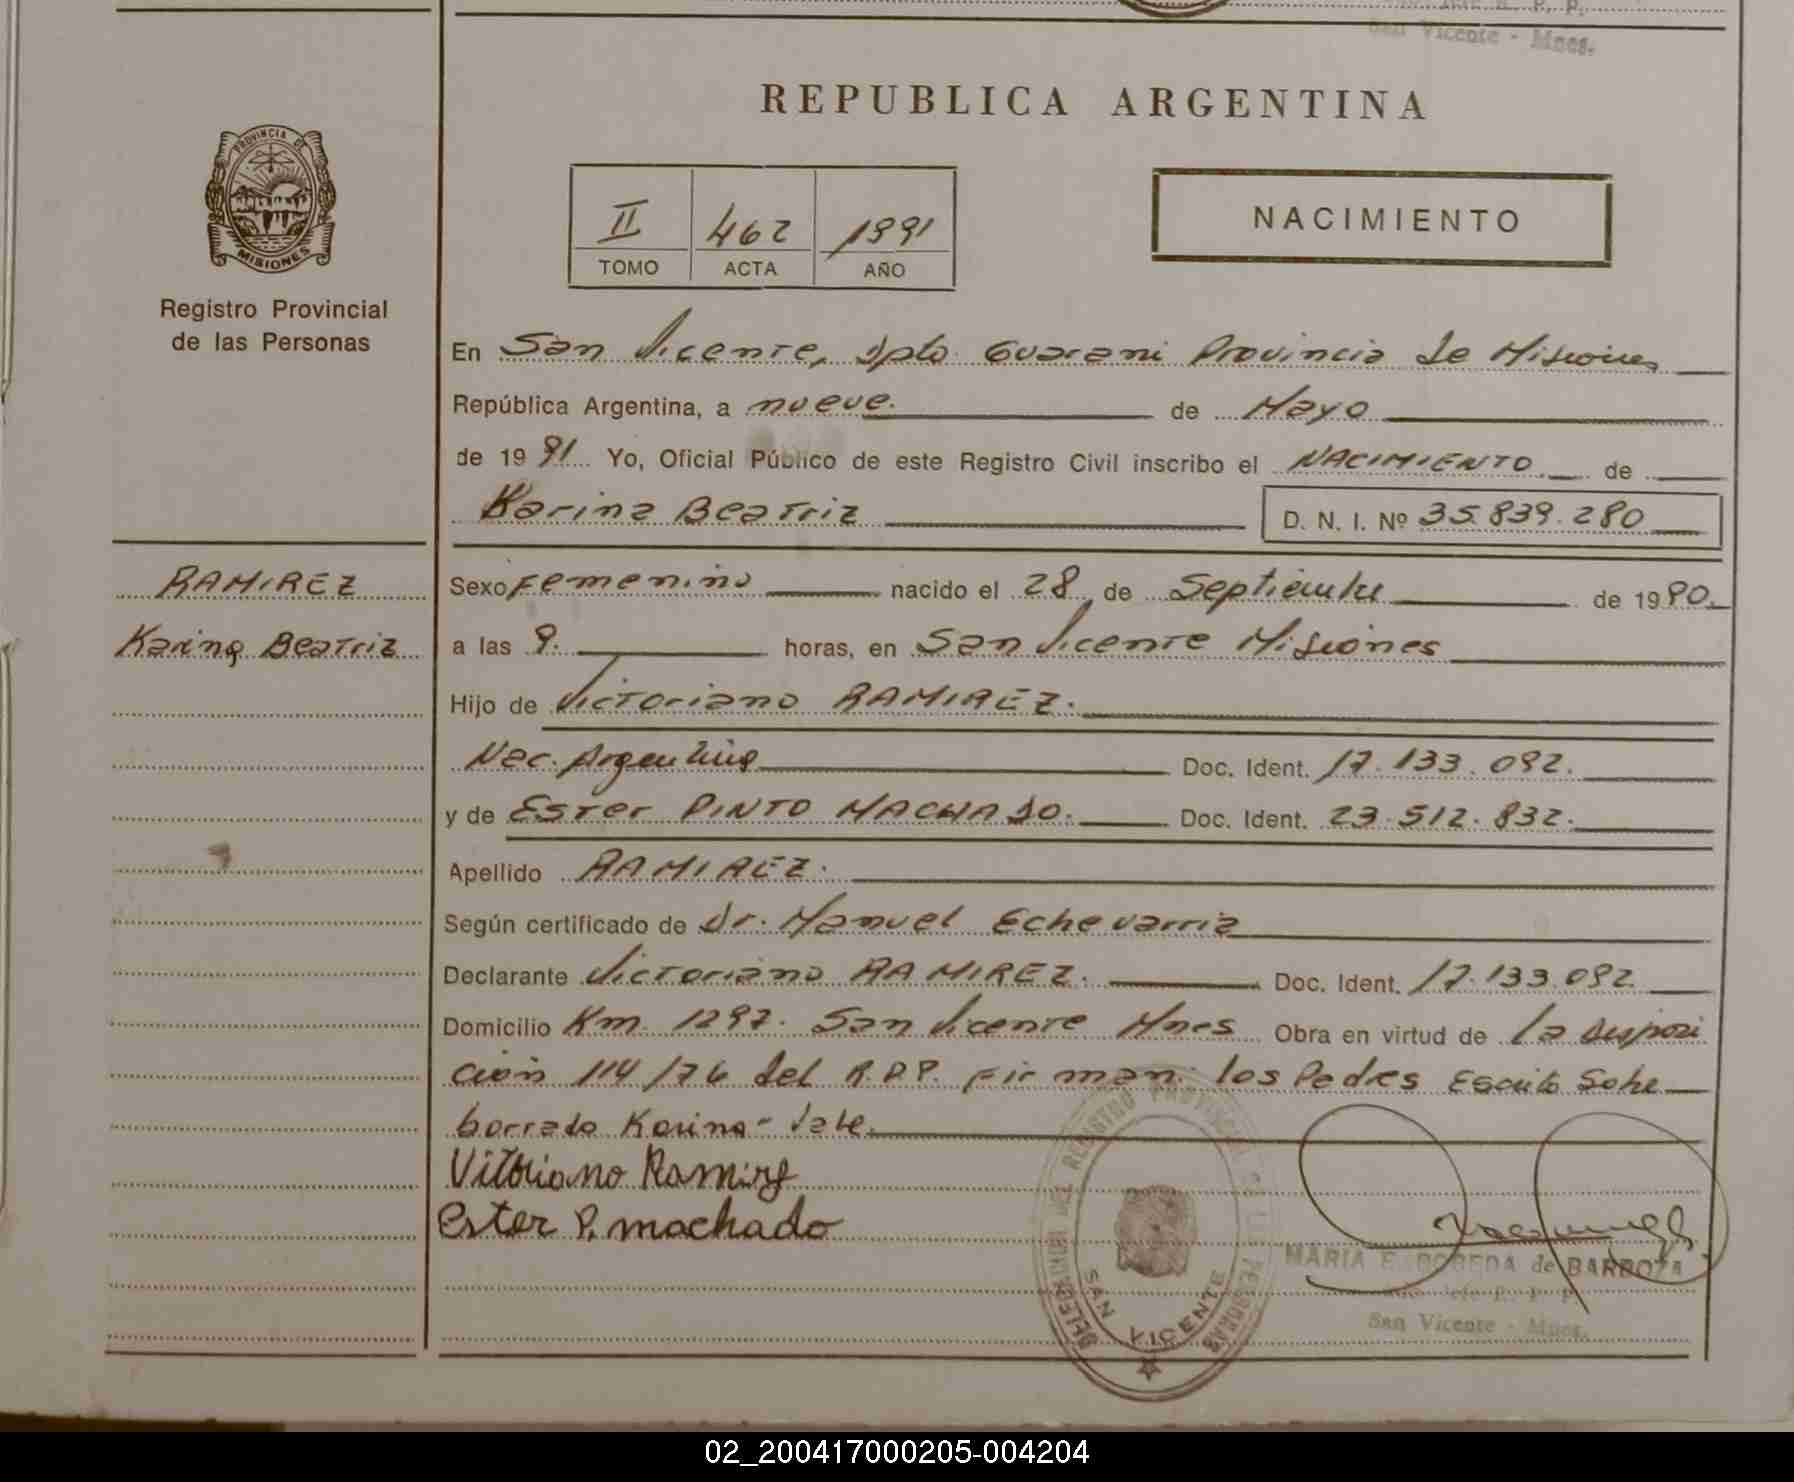 San Vicente - Mnes.
REPUBLICA ARGENTINA
PROVINCIA DE
MISIONES
Registro Provincial
de las Personas
II 462 1991
TOMO ACTA AÑO
NACIMIENTO
En San Vicente, Dpto. Guarani Provincia de Misiones
República Argentina, a nueve. de Mayo
de 19 91 Yo, Oficial Público de este Registro Civil inscribo el NACIMIENTO de
Karina Beatriz D. N. I. Nº 35.839.280
RAMIREZ
Karina Beatriz
Sexo Femenino nacido el 28 de Septiembre de 1990.
a las 9. horas, en San Vicente Misiones
Hijo de Victoriano RAMIREZ.
Nac. Argentina Doc. Ident. 17.133.092.
y de Ester PINTO MACHADO. Doc. Ident. 23.512.832.
Apellido RAMIREZ.
Según certificado de Dr. Manuel Echevarria
Declarante Victoriano RAMIREZ. Doc. Ident. 17.133.092
Domicilio Km. 1297. San Vicente Mnes Obra en virtud de la disposi
ción 114/76 del R.P.P. Firman los Padres Escrito Sobre
borrado Karina - Vale.
Vitoriano Ramirez
Ester P. machado
DELEGACION DEL REGISTRO PROVINCIAL DE LAS PERSONAS
SAN VICENTE
MARIA E. POREDA de BARBOZA
Jefe R. P. P.
San Vicente - Mnes.
02_200417000205-004204